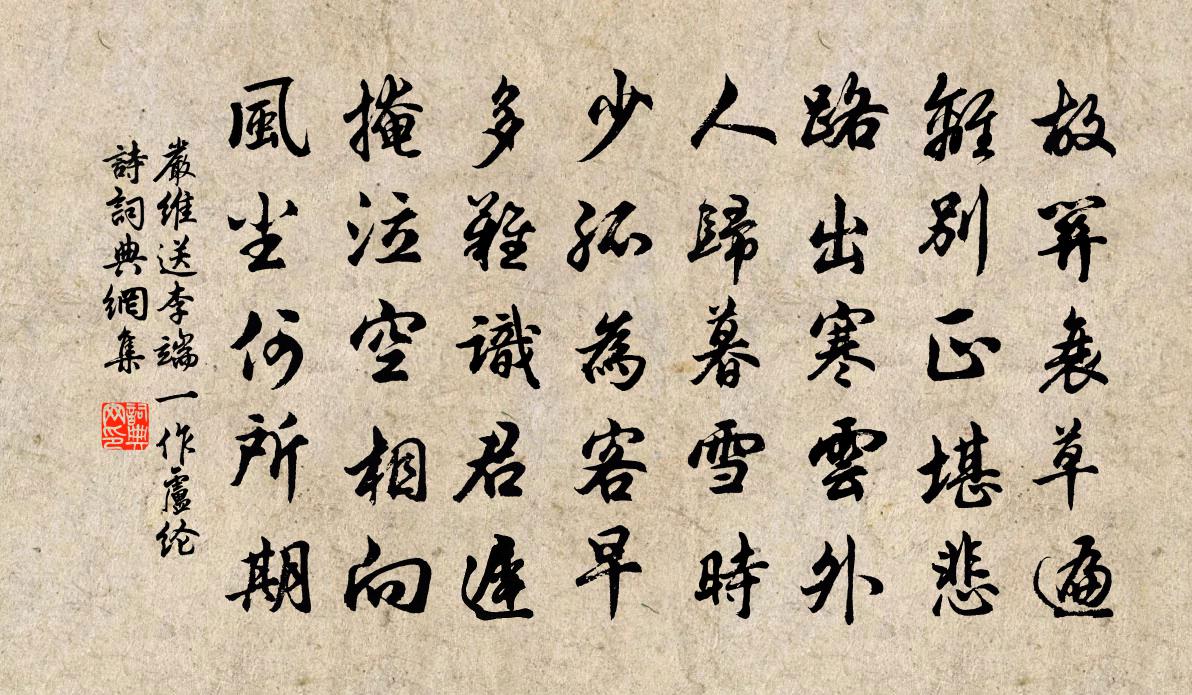 故關衰草遍
離別正堪悲
路出寒雲外
人歸暮雪時
少孤為客早
多難識君遲
掩泣空相向
風尘何所期
嚴維送李端 一作盧纶
詩詞典網集
詞典网印